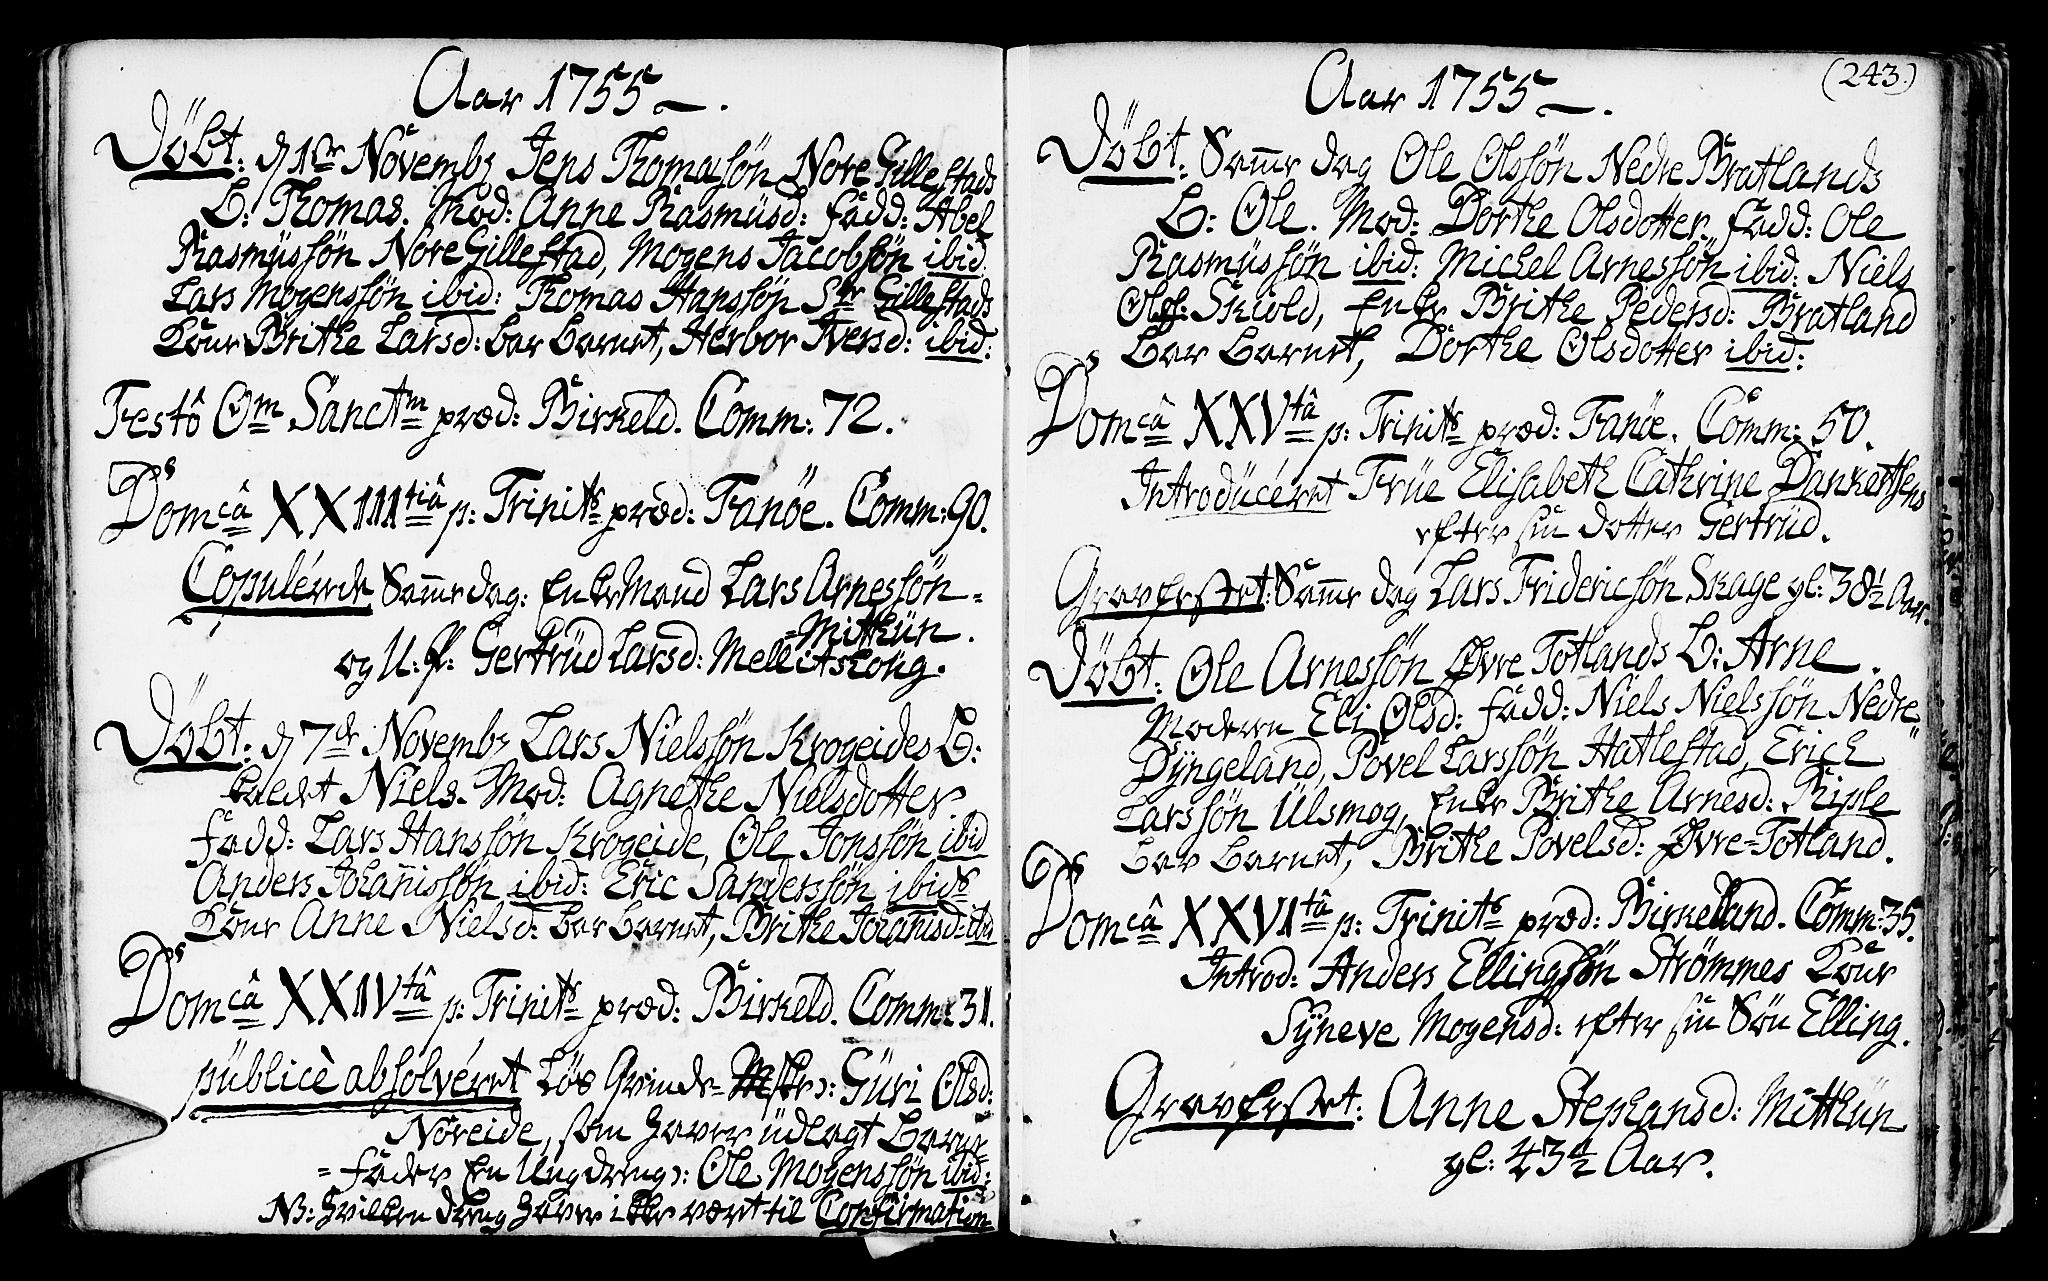 Aar 1755.
Döbt: d 1ste Novembr Jens Thomasön Nore Gillestads
B: Thomas. Mod: Anne Rasmüsd: fadd: Abel
Rasmüssön Nore Gillestad, Mogens Jacobsön ibid
Lars Mogenssön ibid: Thomas Hanssön Str Gillestads
Kone Brithe Larsd: bar barnet, Herbor Iversd: ibid:
Festô Om Sanctm præd: Birkeld. Comm: 72.
Domcâ XXIIItiâ p: Trinits præd: Fanöe. Comm: 90.
Copulérede Same dag: EnkeMand Lars Arnessön-
-Mitthün.
og U: P: Gertrüd Larsd: Mellitshoüg.
Döbt: d 7de Novembr Lars Nielssön Krogeides B:
kaldet Niels. Mod: Agnethe Nielsdotter
fadd: Lars Hanssön Krogeide, Ole Jonssön ibid
Anders Johañissön ibid: Eric Sanderssön ibids
Kone Anne Nielsd: bar barnet, Brithe Johañisd: ibid
Domcâ XXIVtâ p: Trinits præd: Birkeld. Comm: 31.
püblicè absolvéret Løs Qvinde- Güri Olsd:
Nöreide, som haver üdlagt Barne-
=fader En Ungdreng: Ole Mogenssön ibid:
NB: hvilken dreng haver ikke været til Confirmation
Aar 1755.
(243.)
Döbt: Same dag Ole Olssön Nedre Bratlands
B: Ole. Mod: Dorthe Olsdotter. fadd: Ole
Rasmüssön ibid: Michel Arnessön ibid: Niels
Olss: Skiold, Enke Brithe Pedersd: Bratland
bar barnet, Dorthe Olsdotter ibid:
Domcâ XXVtâ p: Trinits præd: Fanöe. Comm: 50.
Introdüceret Früe Elisabeth Cathrine Dankertsens
efter sin dotter Gertrüd.
Gravfestet: Same dag Lars Fridericsön Skage gl: 38½ Aar.
Döbt: Ole Arnessön Øvre Totlands B: Arne.
Moderen Eli Olsd: fadd: Niels Nielssön Nedre=
Dyngeland, Povel Larssön Hatlestad, Erich
Larssön Ülsmog, Enke Brithe Arnesd: Riple
bar barnet, Brithe Povelsd: Øvre=Totland.
Domcâ XXVItâ p: Trinits præd: Birkeland. Comm: 35.
Introd: Anders Ellingssön Strömmes Kone
Syneve Mogensd: efter sin Sön Elling.
Gravfestet: Anne Stephansd: Mitthün
gl: 43½ Aar.